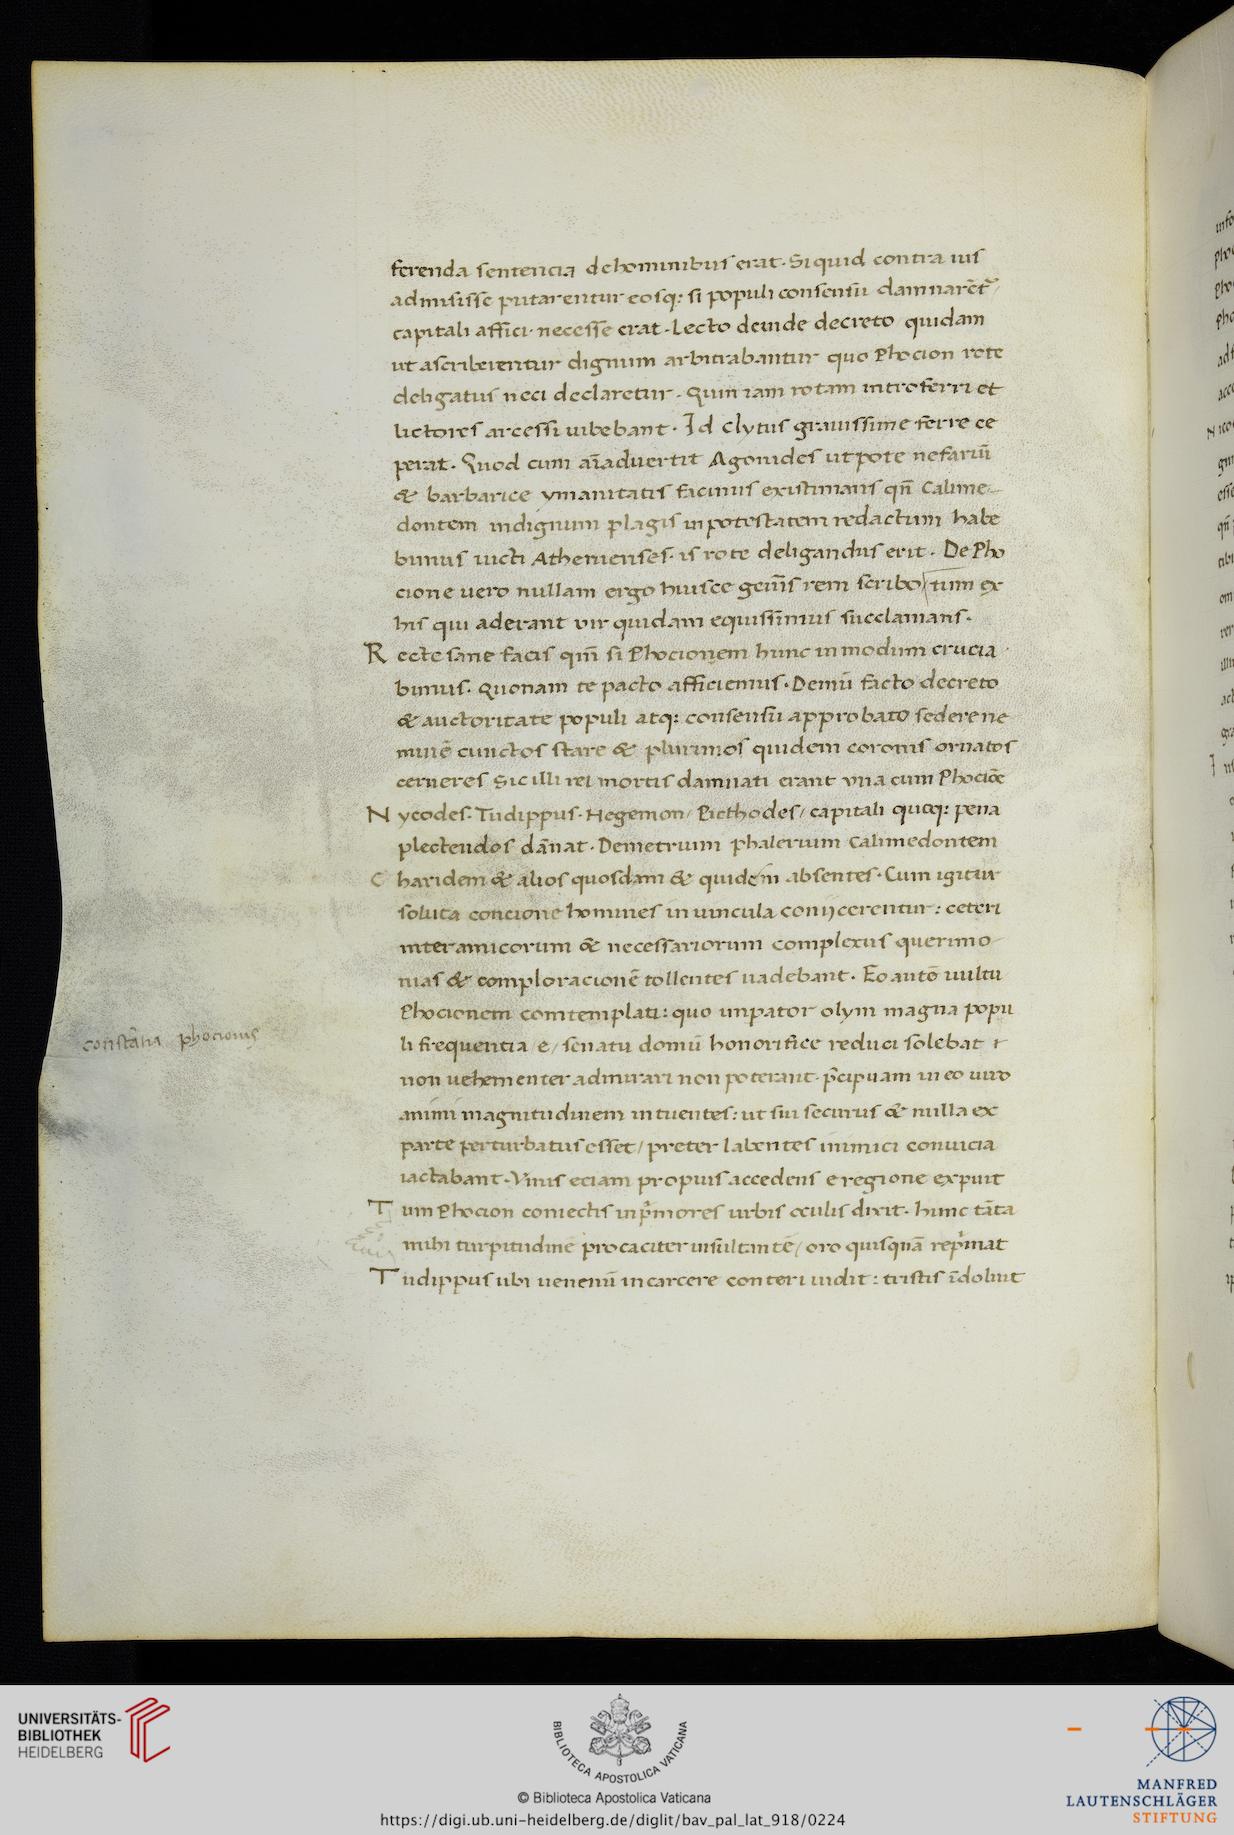 ferenda sentencia de hominibus erat. Siquid contra ius
admisisse putarentur eosq: si populi consensu damnarēt᷑
capitali affici necesse erat. Lecto deinde decreto quidam
ut ascriberentur dignum arbitrabantur quo Phocion rote
deligatus neci declaretur. Quin iam rotam introferri et
lictores arcessi uibebant. Id Clytus grauissime ferre ce
perat. Quod cum aīaduertit Agonides utpote nefariū
& barbarice ymanitatis facinus existimans qn̄ Calime
dontem indignum plagis in potestatem redactum habe
bimus uicti Athenienses. is rote deligandus erit. De Pho
cione uero nullam ergo huisce geūis rem scribo/ tum ex
his qui aderant vir quidam equissimus succlamans.
Recte sane facis qm̄ si Phocionem hunc in modum crucia
bimus. Quonam te pacto afficiemus. Demū facto decreto
& auctoritate populi atq: consensu approbato sedere ne
minē cunctos stare & plurimos quidem coronis ornatos
cerneres Sic illi rei mortis damnati erant vna cum Phociōe
Nycodes. Tudippus. Hegemon/ Picthodes/ capitali quoq: pena
plectendos dānat. Demetrium phalerium Calimedontem
Charidem & alios quosdam & quidem absentes. Cum igitur
soluta concione homines in uincula conijcerentur: ceteri
inter amicorum & necessariorum complexus querimo
nias & comploracionē tollentes uadebant. Eo autē uultu
Phocionem comtemplati: quo inpator olym magna popu
li frequentia/ e/ senatu domū honorifice reduci solebat
non uehementer admirari non poterant. p̄cipuam in eo uiro
animi magnitudinem intuentes: ut sui securus & nulla ex
parte perturbatus esset/ preter labentes inimici conuicia
iactabant. Vnus eciam propius accedens e regione expuit
Tum Phocion coniectis in pīmores urbis oculis dixit. hunc tāta
mihi turpitudine procaciter insultantē/ oro quisquā repīmat
Tudippus ubi uenenū in carcere conteri uidit: tristis īdoluit
constātia phocionis
UNIVERSITÄTS-
BIBLIOTHEK
HEIDELBERG
BIBLIOTECA APOSTOLICA VATICANA
© Biblioteca Apostolica Vaticana
https://digi.ub.uni-heidelberg.de/diglit/bav_pal_lat_918/0224
MANFRED
LAUTENSCHLÄGER
STIFTUNG